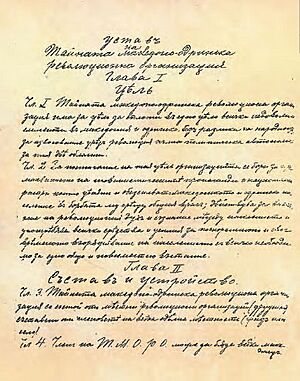 Уставъ
на
Тайната Македоно-Одринска
революционна организация
Глава I
Цѣль
Чл. I Тайната македоноодринска революционна орган-
изация има за цѣль да сплоти въ едно цѣло всички недоволни
елементи въ Македония и Одринско, безъ разлика на народность,
за извоюване чрезъ революция пълна политическа автономия
за тия двѣ области.
Чл. 2. За постигане на тая цѣль организацията се бори за
на шовинистическитѣ пропаганди и национални
распри които цѣпятъ и обезсилватъ македонското и одринско на-
селение въ борбата му срещу общия врагъ; действува за внася-
не на революционенъ духъ и съзнание между населението и
употрѣбява всички срѣдства и усилия за
врѣменното въоръжаване на населението съ всичко необходи-
мо за едно общо и повсемѣстно възстание.
Глава II
Съставъ и устройство.
Чл. 3. Тайната македоно-одринска революционна органи-
зация се състои отъ мѣстни революционни организации (дружини)
съставени отъ членоветѣ на всѣка отдѣлна мѣстность (градъ или
село)
Чл 4. Членъ на Т. М. О. Р. О може да бѫде всѣки маке-